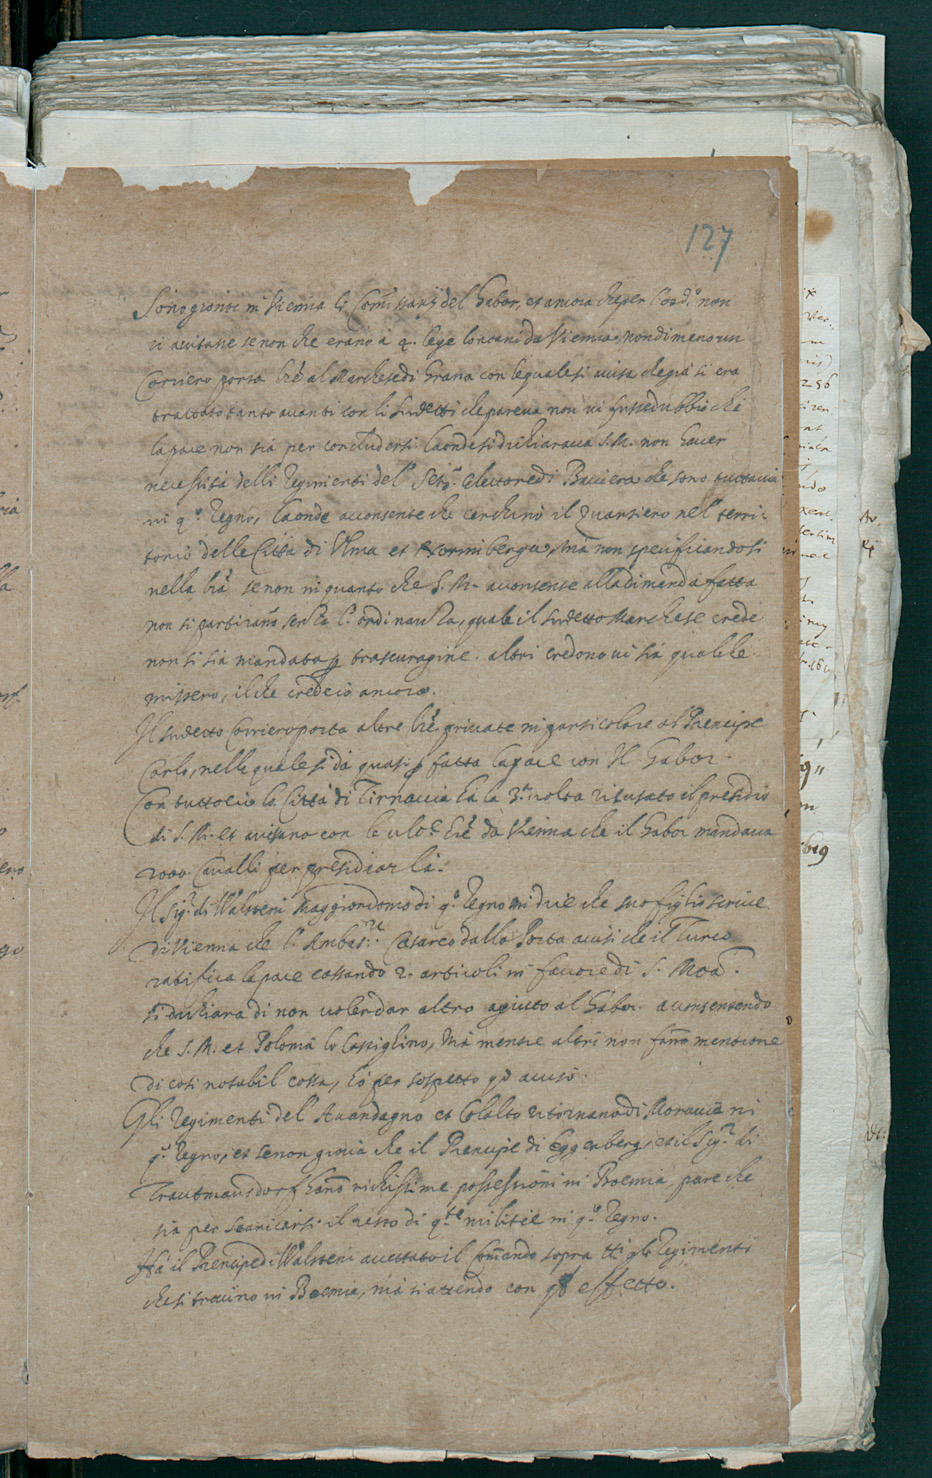 127
Sono gionti in Vienna li Com̃issarij del Gabor, et ancora che per l'ord.º non
ci avisasse se non che erano à 4. lege lontani da Vienna, nondimeno un
Corriero porta lr̃e al Marchese di Grana con le quale si avisa che già si era
trattato tanto avanti con li sudetti che pareva non vi fusse dubbio che
la pace non sia per concludersi. Laonde si dichiarava S. M. non haver
necessità delli Regimenti del Ser.mo Elettore di Baviera che sono tuttavia
in q.º Regno, laonde acconsente che cerchino il Quartiero nel terri-
torio delle Città di Ulma et Norimberga, mà non specificandosi
nella lrã se non in quanto che S. M. acconsente alla dimanda fatta
non si partirano senza l'ordinanza, quale il sudetto Marchese crede
non si sia mandata p trascuragine. altri credono vi sia qualche
missero, il che credo io ancora.
Il sudetto Corriero porta altre lr̃e private in particolare al Prencipe
Carlo, nelle quale si dà quasi p fatta la pace con Il Gabor.
Con tutto ciò la Città di Tirnavia hà la 3.a volta rifiutato il presidio
di S. M. et avisano con le ult.e lr̃e da Vienna che il Gabor mandava
2000. Cavalli per presidiar la.
Il Sig.r di Walstein Maggiordomo di q.º Regno mi dice che suo figlio scrive
da Vienna che l'Ambas.re Cesareo dalla Porta avisi che il Turco
ratifica la pace cassando 2. articoli in favore di S. Mtà.
si dichiara di non voler dar altro agiutto al Gabor. acconsentendo
che S. M. et Polonia lo Castighino, Mà mentre altri non fan̄o mentione
di cosi notabil cossa, hò per sospetto q.º aviso.
Gli Regimenti del Avandagno et Colalto ritornano di Moravia in
q.º Regno, et se non giova che il Prencipe di Eggenberg, et il Sig.r di
Trautmansdorf hano richissime possessioni in Boemia, pare che
sia per scaricarsi il resto di q.te militie in q.º Regno.
Hà il Prencipe di Walstein accettato il Com̃ando sopra tti gli Regimenti
che si trovino in Boemia, mà si attende con q.l effetto.